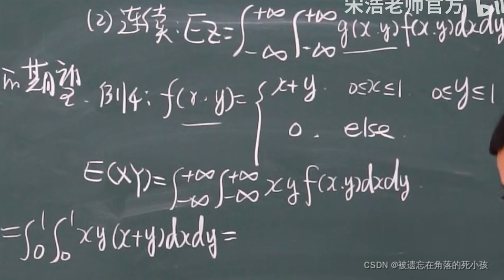 宋浩老师官方
(2) 连续: EZ=∫_{-∞}^{+∞}∫_{-∞}^{+∞} g(x,y)f(x,y)dxdy
期望
例4: f(x,y)={x+y, 0≤x≤1 0≤y≤1
0, else
E(XY)=∫_{-∞}^{+∞}∫_{-∞}^{+∞} xyf(x,y)dxdy
=∫_0^1∫_0^1 xy(x+y)dxdy=
CSDN @被遗忘在角落的死小孩